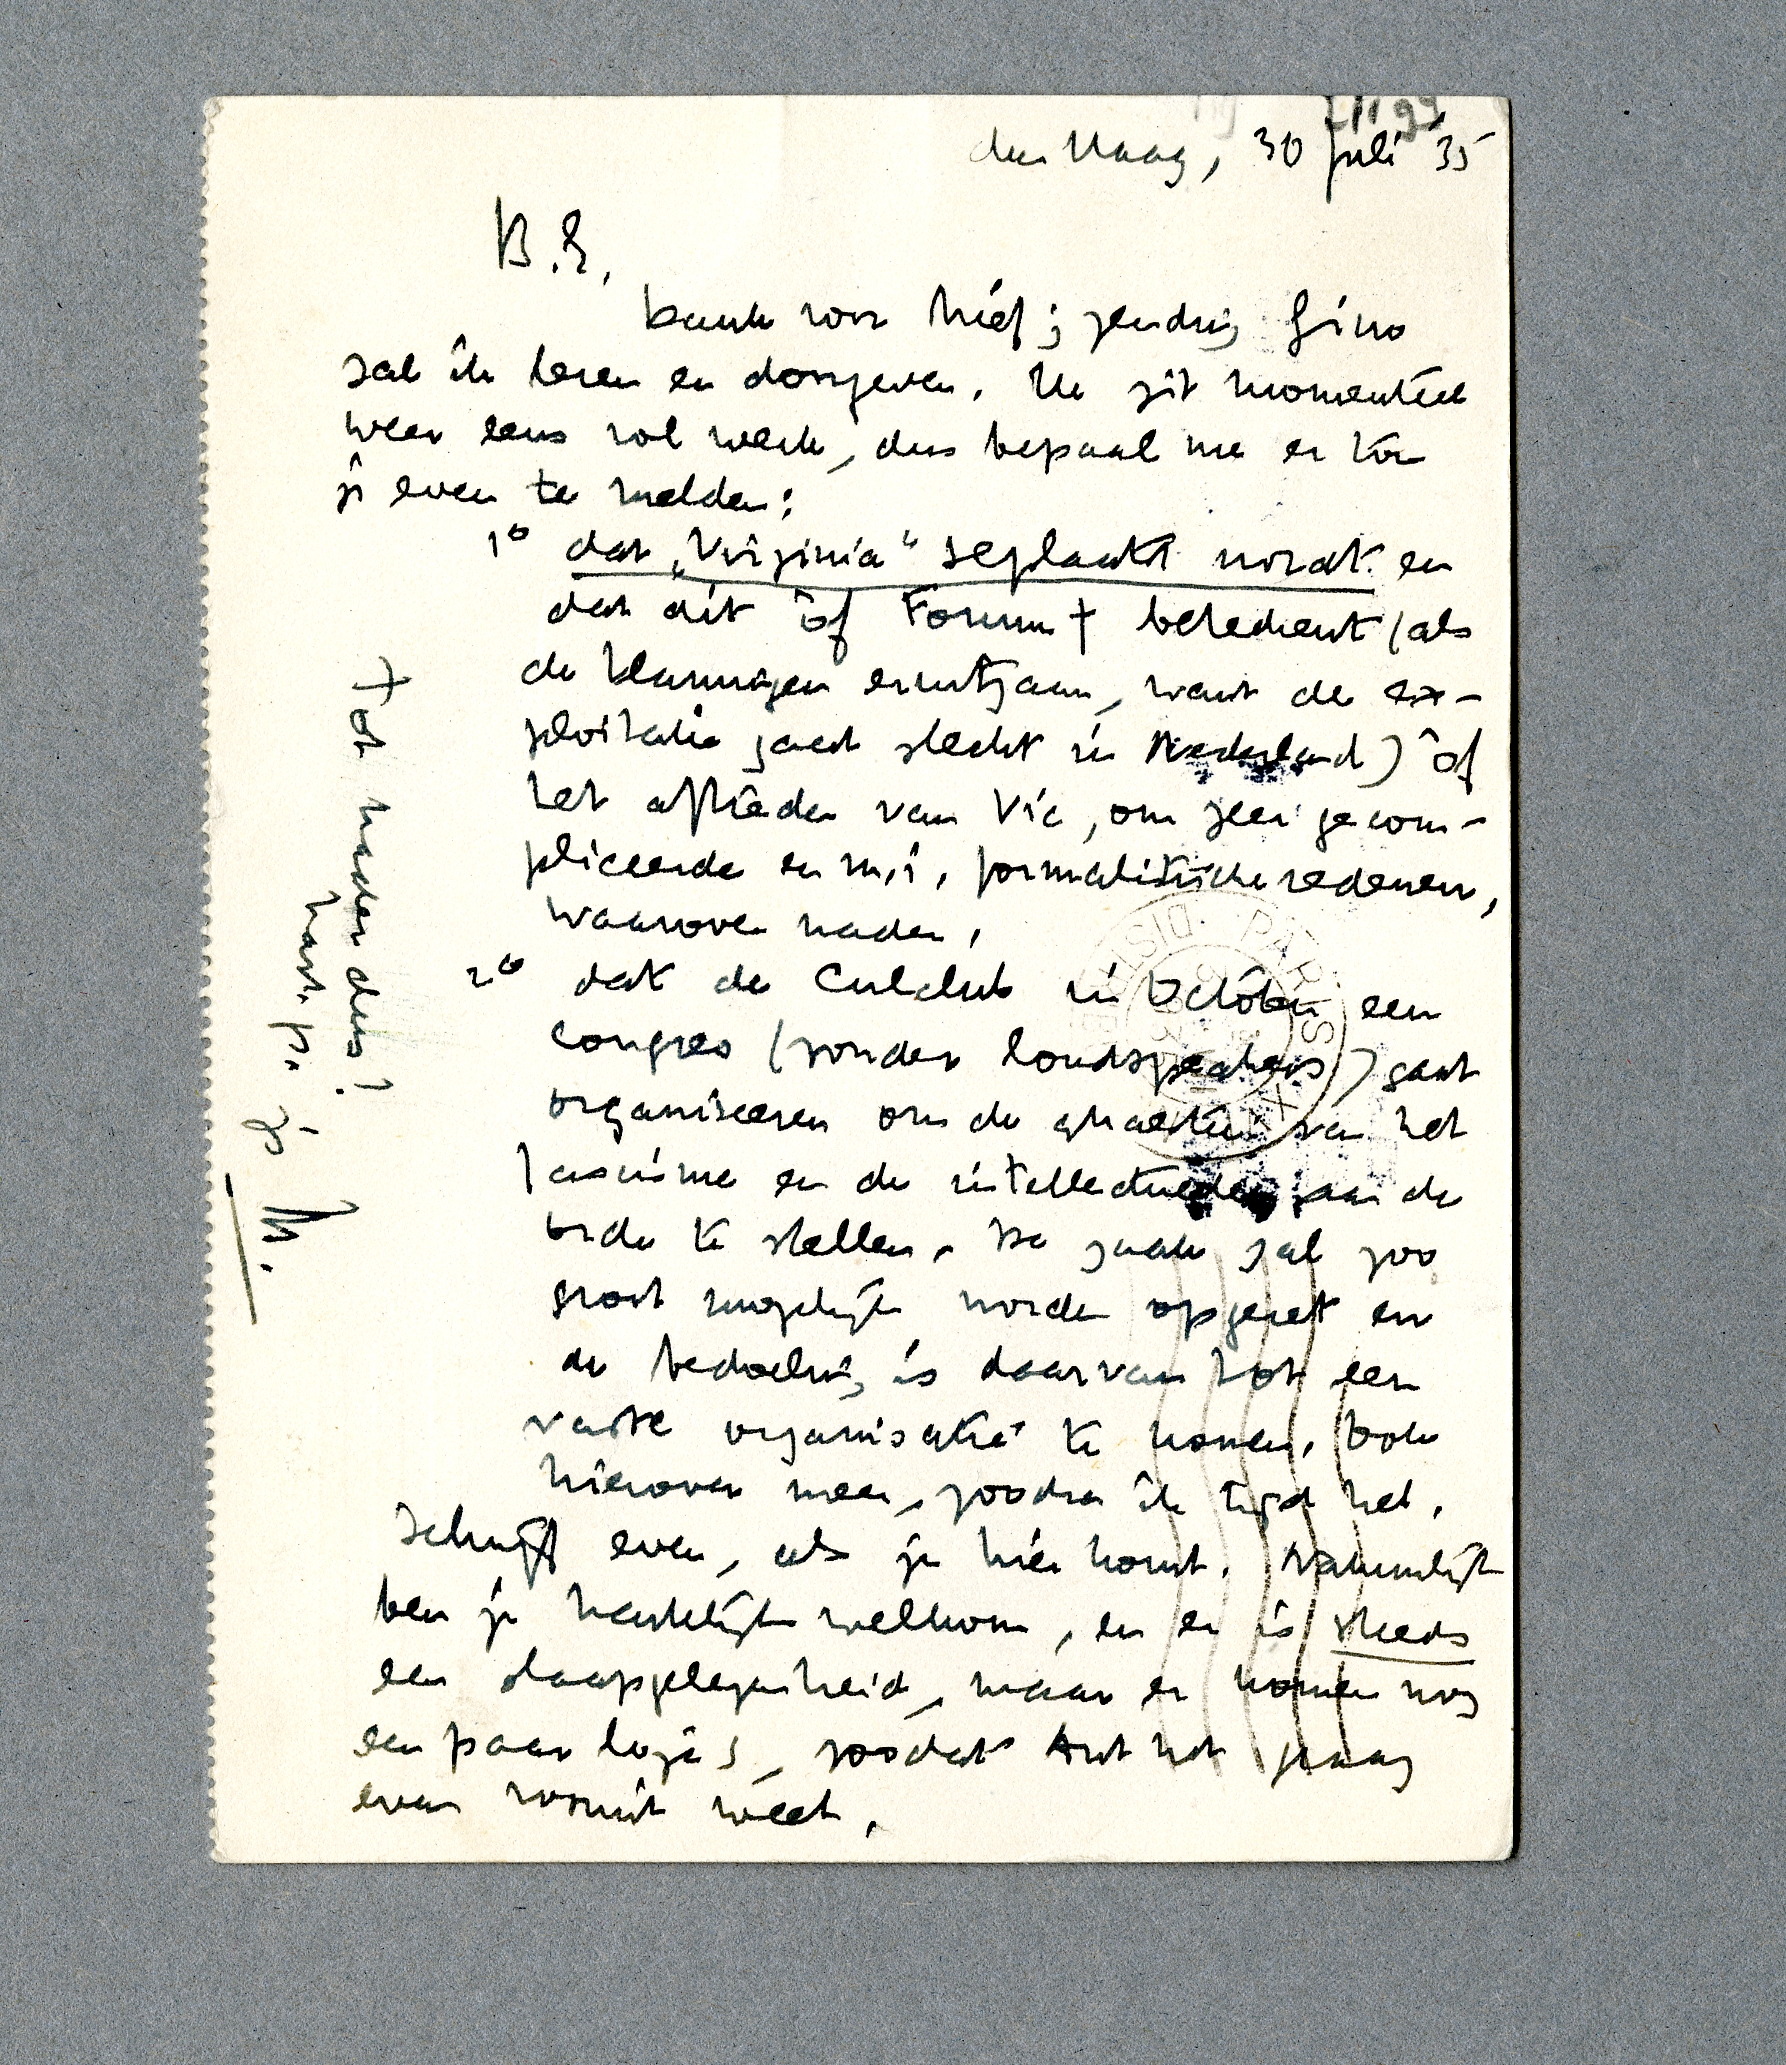 den Haag, 30 Juli 35
B.E.
Dank voor brief; zending Gino
zal ik lezen en doorgeven. Ik zit momenteel
weer eens vol werk, dus bepaal me er toe
je even te melden:
1º dat „Virginia" geplaatst wordt en
dat dit òf Forum † beteekent (als
de Vlamingen eruitgaan, want de ex-
ploitatie gaat slecht in Nederland) òf
het aftreden van Vic, om zeer gecom-
pliceerde en m.i. formalistische redenen,
waarover nader.
2º dat de Culclub in October een
congres (zonder loudspeakers) gaat
organiseeren om de quaestie van het
fascisme en de intellectueelen aan de
orde te stellen. De zaak zal zoo
groot mogelijk worden opgezet en
de bedoeling is daarvan tot een
vaste organisatie te komen. Ook
hierover meer, zoodra ik tijd heb.
Schrijf even, als je hier komt. Natuurlijk
ben je hartelijk welkom, en er is steeds
een slaapgelegenheid, maar er komen nog
een paar logé's, zoodat Ant het graag
even vooruit weet.
Tot nader dus!
hart. gr. je
M.
PARIS